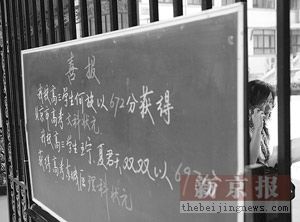 喜报
我校高三学生何旋以672分获得
北京市高考文科状元
我校高三学生 夏君 以 69 分
获得高考 城区理科状元
新京报
thebeijingnews.com